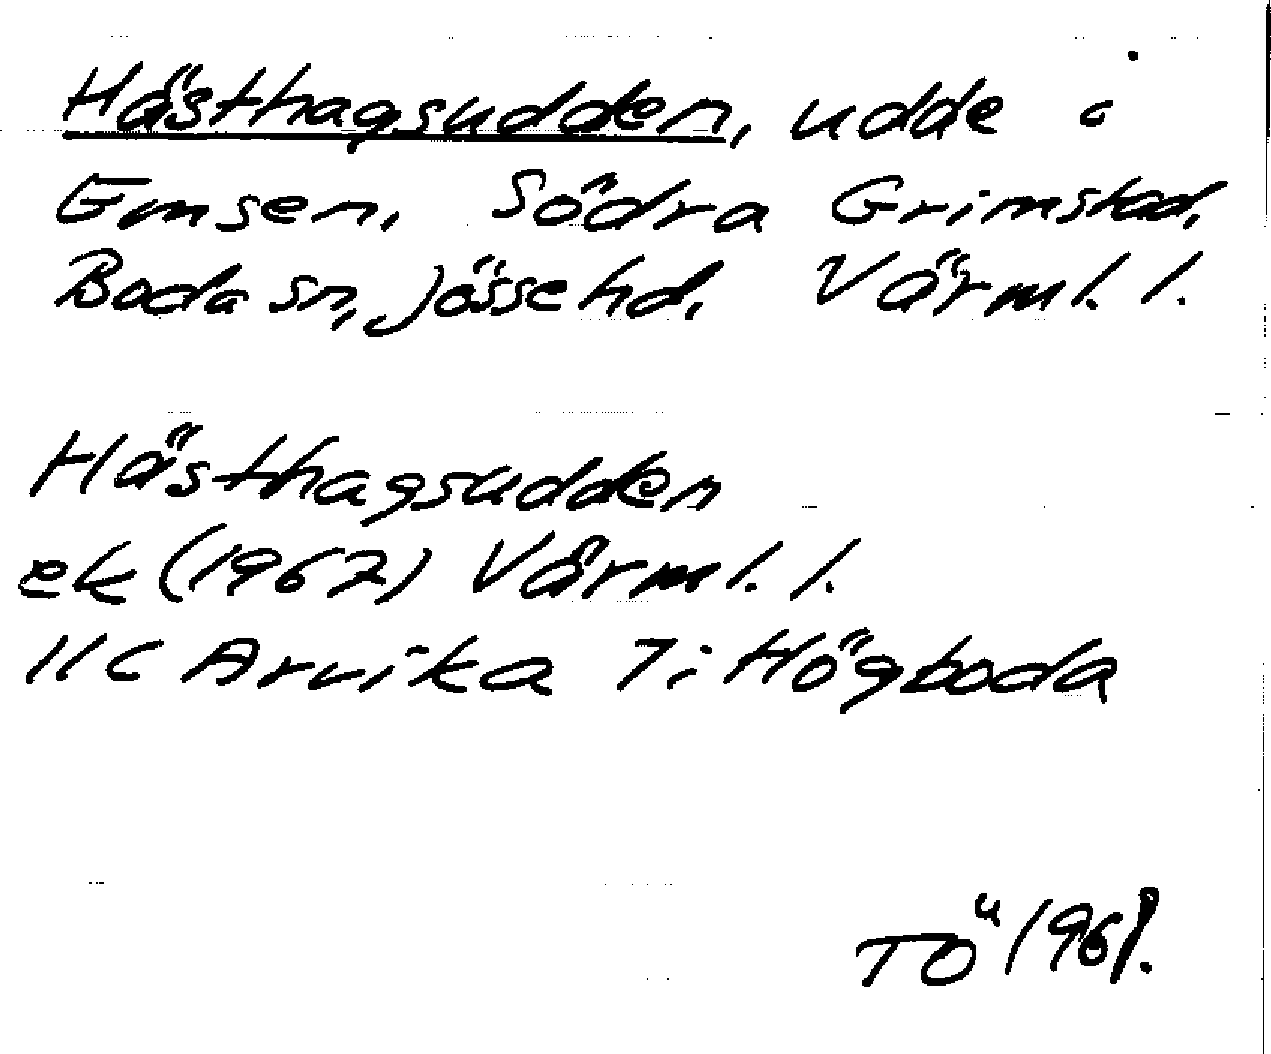 Hästhagsudden, udde i
Emsen, Södra Grimstad,
Boda sn, Jösse hd, Värml. l.
Hästhagsudden
ek (1967) Värml. l.
11C Arvika 7i Högboda
TÖ